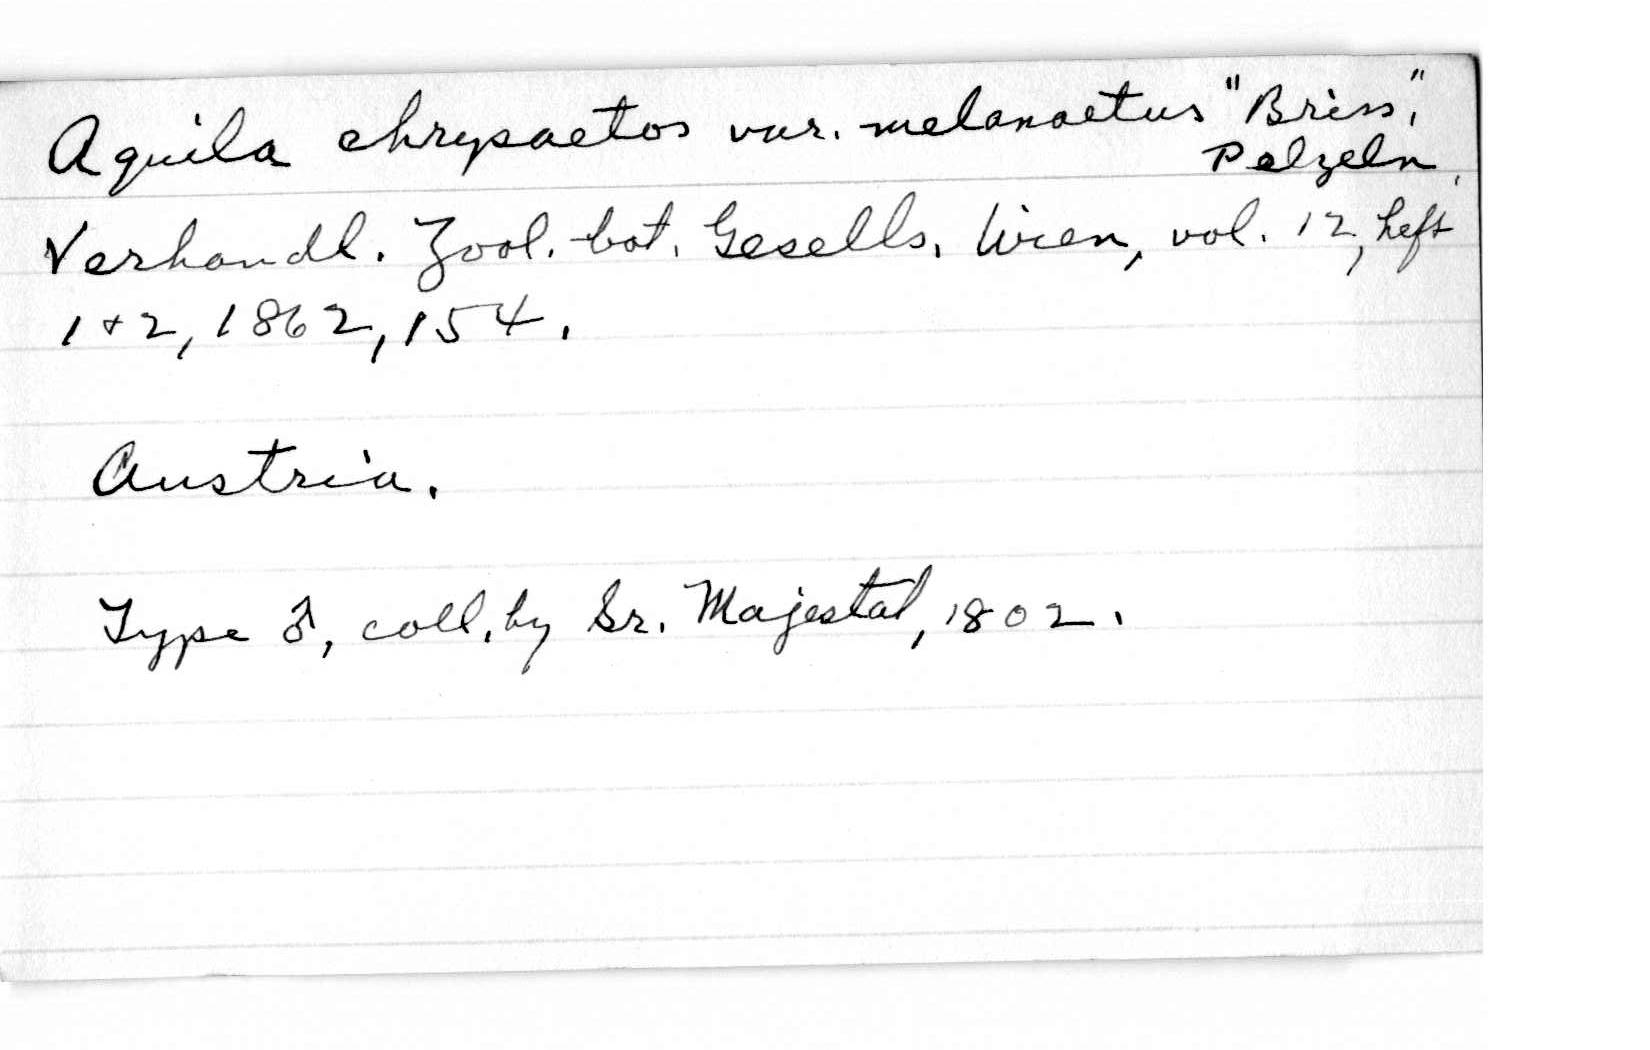 Aquila chrysaetos var. melanaetus "Briss",
Pelzeln,
Verhandl. Zool.-bot. Gesells. Wien, vol. 12, heft
1+2, 1862, 154.
Austria.
Type ♂, coll. by Sr. Majestat, 1802.